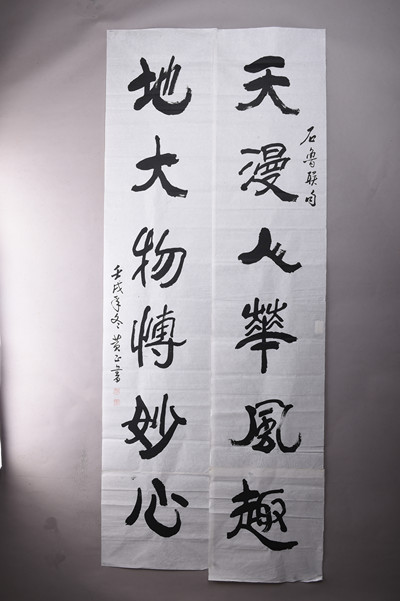 天漫人華風趣
石魯联句
地大物愽妙心
壬戌年冬 黄正書